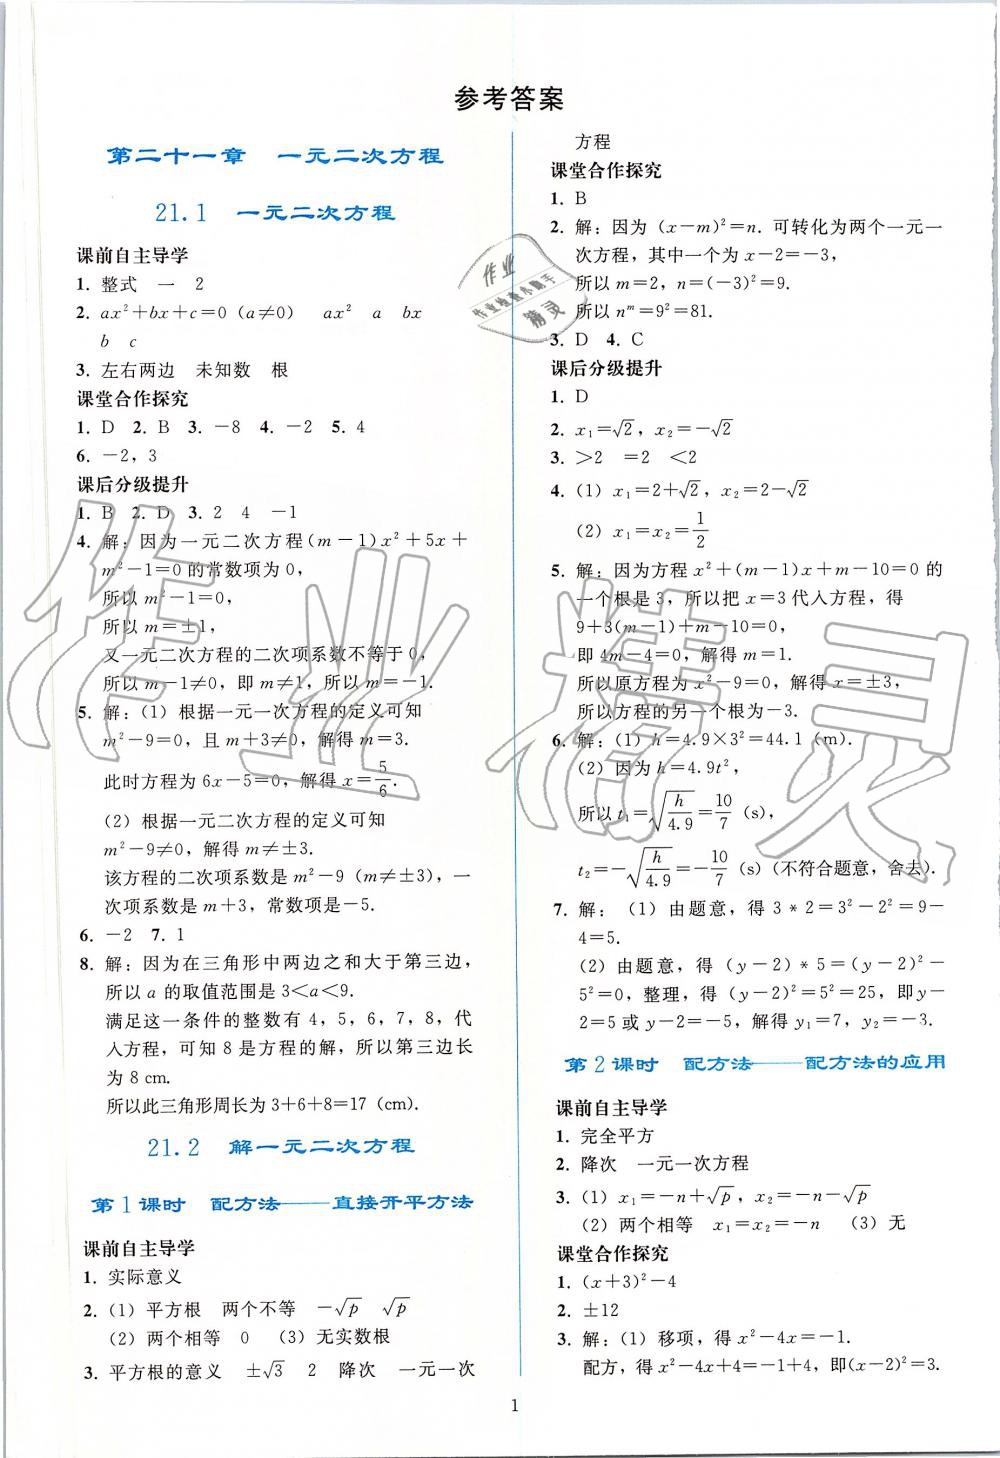 参考答案
第二十一章 一元二次方程
21.1 一元二次方程
课前自主导学
1. 整式 一 2
2. ax²+bx+c=0(a≠0) ax² a bx
b c
3. 左右两边 未知数 根
课堂合作探究
1. D 2. B 3. -8 4. -2 5. 4
6. -2, 3
课后分级提升
1. B 2. D 3. 2 4 -1
4. 解:因为一元二次方程(m-1)x²+5x+
m²-1=0的常数项为0,
所以m²-1=0,
所以m=±1,
又一元二次方程的二次项系数不等于0,
所以m-1≠0,即m≠1,所以m=-1.
5. 解:(1)根据一元一次方程的定义可知
m²-9=0,且m+3≠0,解得m=3.
此时方程为6x-5=0,解得x=5/6.
(2)根据一元二次方程的定义可知
m²-9≠0,解得m≠±3.
该方程的二次项系数是m²-9(m≠±3),一
次项系数是m+3,常数项是-5.
6. -2 7. 1
8. 解:因为在三角形中两边之和大于第三边,
所以a的取值范围是3<a<9.
满足这一条件的整数有4,5,6,7,8,代
入方程,可知8是方程的解,所以第三边长
为8 cm.
所以此三角形周长为3+6+8=17(cm).
21.2 解一元二次方程
第1课时 配方法——直接开平方法
课前自主导学
1. 实际意义
2. (1)平方根 两个不等 -√p √p
(2)两个相等 0 (3)无实数根
3. 平方根的意义 ±√3 2 降次 一元一次
方程
课堂合作探究
1. B
2. 解:因为(x-m)²=n.可转化为两个一元一
次方程,其中一个为x-2=-3,
所以m=2,n=(-3)²=9.
所以nᵐ=9²=81.
3. D 4. C
课后分级提升
1. D
2. x₁=√2, x₂=-√2
3. >2 =2 <2
4. (1) x₁=2+√2, x₂=2-√2
(2) x₁=x₂=1/2
5. 解:因为方程x²+(m-1)x+m-10=0的
一个根是3,所以把x=3代入方程,得
9+3(m-1)+m-10=0,
即4m-4=0,解得m=1.
所以原方程为x²-9=0,解得x=±3,
所以方程的另一个根为-3.
6. 解:(1)h=4.9×3²=44.1(m).
(2)因为h=4.9t²,
所以t₁=√(h/4.9)=10/7(s),
t₂=-√(h/4.9)=-10/7(s)(不符合题意,舍去).
7. 解:(1)由题意,得3*2=3²-2²=9-
4=5.
(2)由题意,得(y-2)*5=(y-2)²-
5²=0,整理,得(y-2)²=5²=25,即y-
2=5或y-2=-5,解得y₁=7,y₂=-3.
第2课时 配方法——配方法的应用
课前自主导学
1. 完全平方
2. 降次 一元一次方程
3. (1) x₁=-n+√p, x₂=-n-√p
(2)两个相等 x₁=x₂=-n (3)无
课堂合作探究
1. (x+3)²-4
2. ±12
3. 解:(1)移项,得x²-4x=-1.
配方,得x²-4x+4=-1+4,即(x-2)²=3.
1
作业
作业检查小助手
精灵
作业精灵